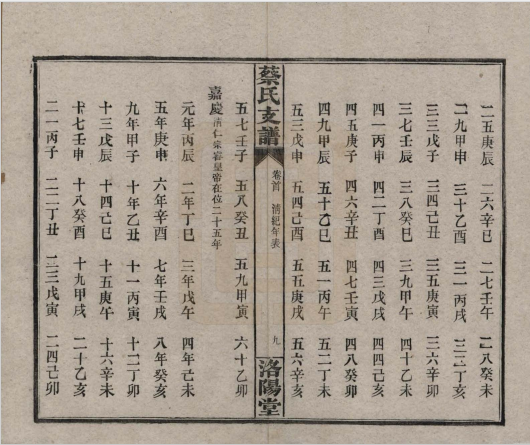 二五庚申 二六辛巳 二七壬午 二八癸未
二九甲申 三十乙酉 三一丙戌 三二丁亥
三三戊子 三四己丑 三五庚寅 三六辛卯
三七壬辰 三八癸巳 三九甲午 四十乙未
四一丙申 四二丁酉 四三戊戌 四四己亥
四五庚子 四六辛丑 四七壬寅 四八癸卯
四九甲辰 五十乙巳 五一丙午 五二丁未
五三戊申 五四己酉 五五庚戌 五六辛亥
蔡氏支譜
卷首 清紀年表
九
洛陽堂
五七壬子 五八癸丑 五九甲寅 六十乙卯
嘉慶 清仁宗睿皇帝在位二十五年
元年丙辰 二年丁巳 三年戊午 四年己未
五年庚申 六年辛酉 七年壬戌 八年癸亥
九年甲子 十年乙丑 十一丙寅 十二丁卯
十三戊辰 十四己巳 十五庚午 十六辛未
十七壬申 十八癸酉 十九甲戌 二十乙亥
二一丙子 二二丁丑 二三戊寅 二四己卯